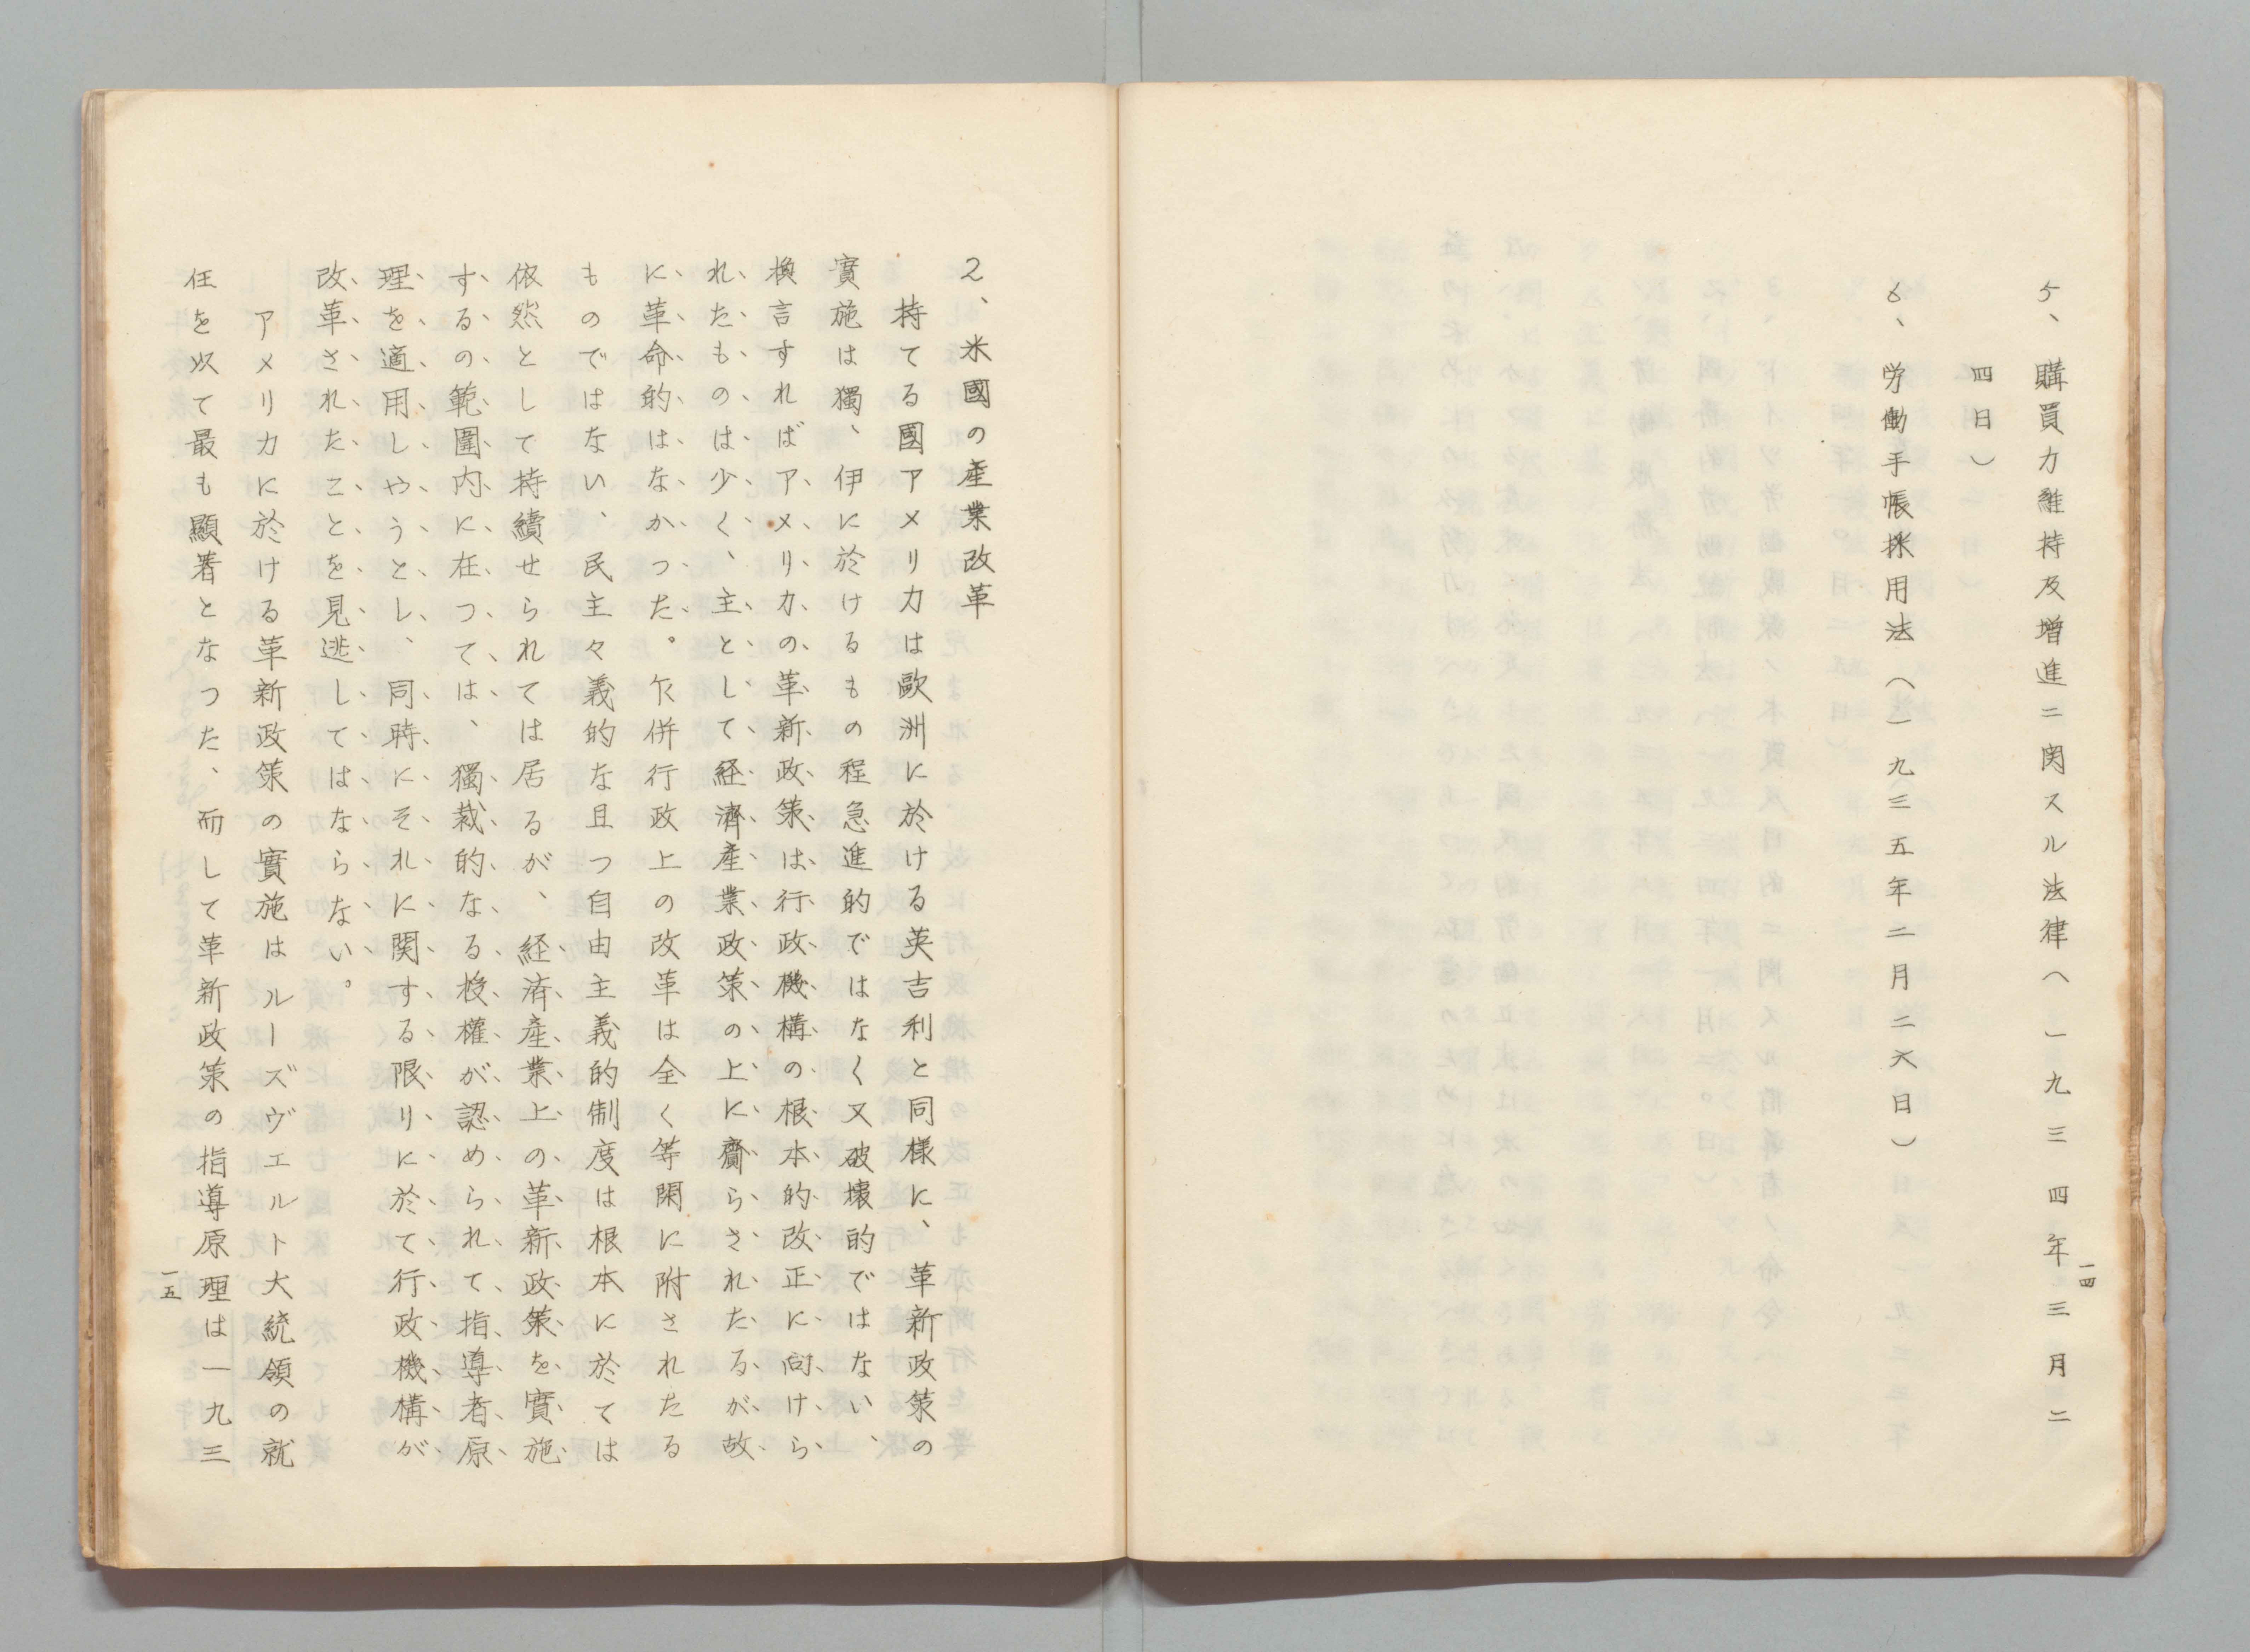 5、購買力維持及増進ニ関スル法律（一九三四年三月二
四日）
6、労働手帳採用法（一九三五年二月二六日）
一四
2、米國の產業改革
持てる國アメリカは歐洲に於ける英吉利と同様に、革新政策の
實施は獨、伊に於けるもの程急進的ではなく又破壊的ではない、
換言すればアメリカの革新政策は行政機構の根本的改正に向けら
れたものは少く、主として経濟產業政策の上に齎らされたるが故
に革命的はなかつた。乍併行政上の改革は全く等閑に附されたる
ものではない、民主々義的な且つ自由主義的制度は根本に於ては
依然として持續せられては居るが、経済産業上の革新政策を實施
するの範圍内に在つては、獨裁的なる授權が認められて、指導者原
理を適用しやうとし、同時にそれに関する限りに於て行政機構が
改革されたことを見逃してはならない。
アメリカに於ける革新政策の實施はルーズヴエルト大統領の就
任を以て最も顯著となつた、而して革新政策の指導原理は一九三
一五